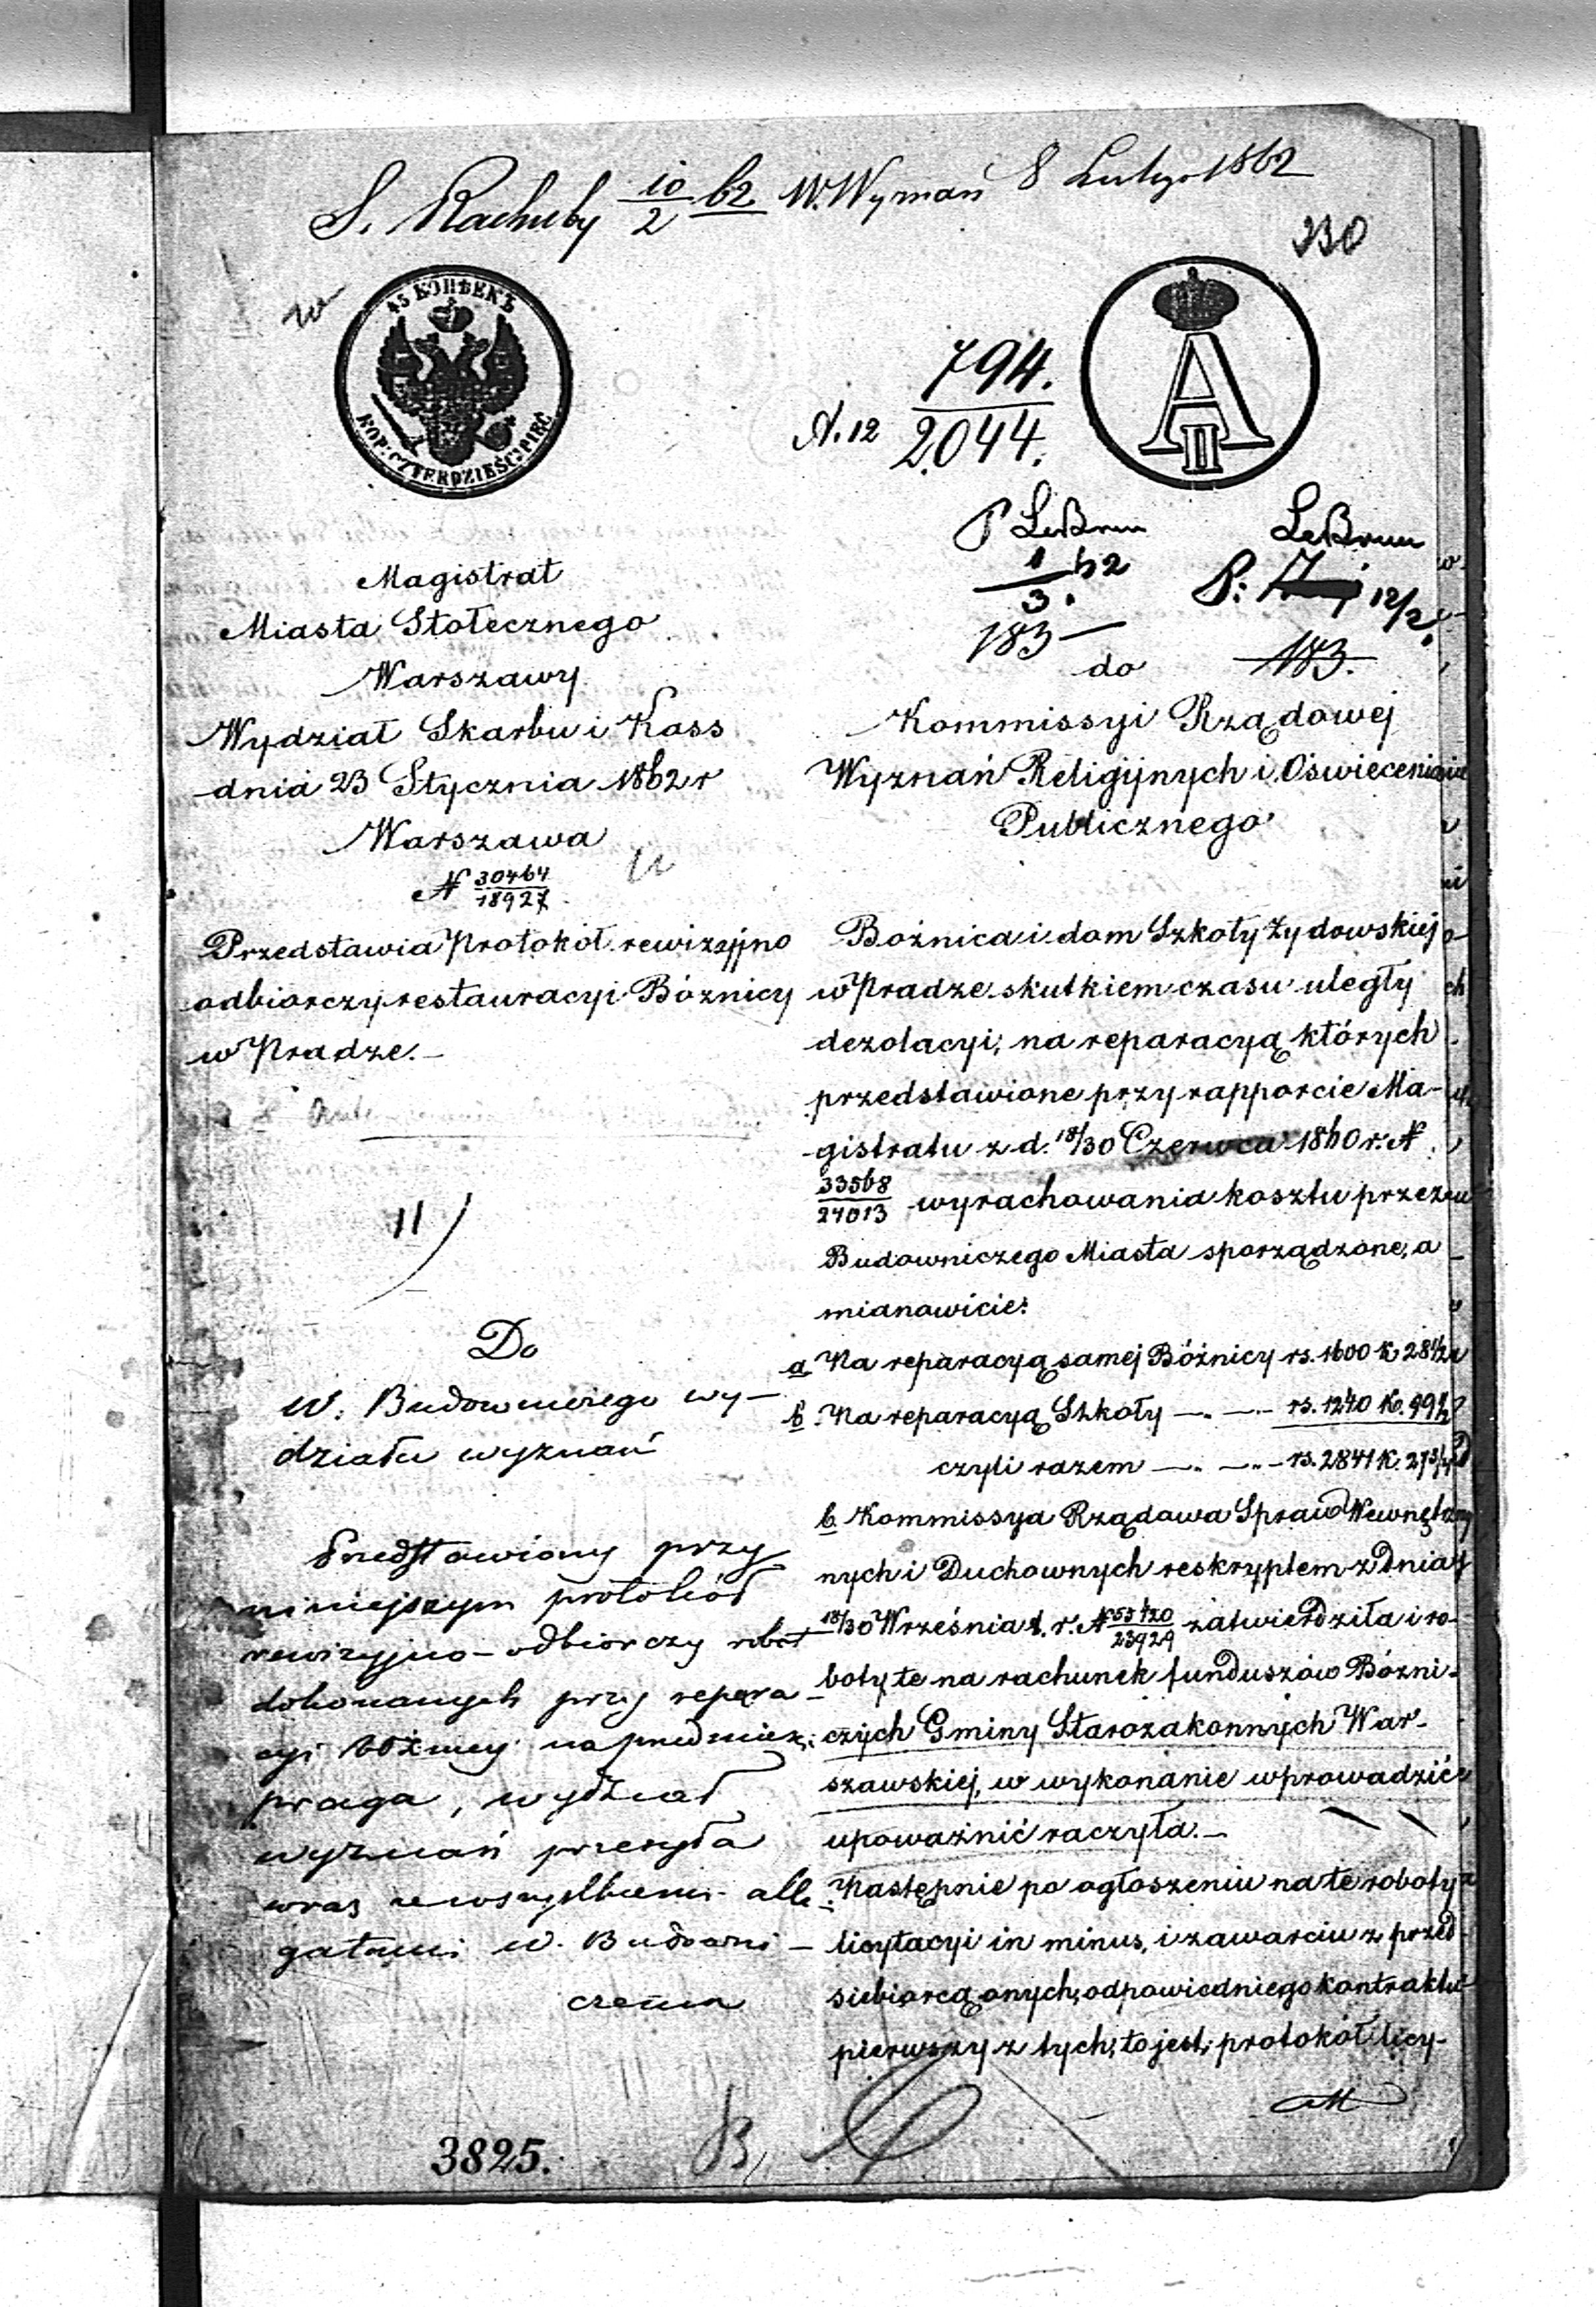 S. Rachuby 10/2 62 W. Wyznań 8 Lutego 1862
230
45 КОПѢЕКЪ
KOP: CZTERDZIEŚCI PIĘĆ
A II
N. 12 794./2044.
P LeBrun
1/3. 62
183 —
LeBrun
P: 12/2.
183.
Magistrat
Miasta Stołecznego
Warszawy
Wydział Skarbu i Kass
dnia 23 Stycznia 1862 r
Warszawa
N 30464/18927
Przedstawia Protokół rewizyjno
odbiorczy restauracyi Bóżnicy
w Pradze.—
11)
Do
W. Budowniczego wy-
działu wyznań
Przedstawiony przy
niniejszym protokół
rewizyjno-odbiorczy robót
dokonanych przy repera-
cyi bóżnicy na przedmieś:
praga, wydział
wyznań przesyła
wraz ze wszystkiemi alle
gatami W. Budowni-
czemu
do
Kommissyi Rządowej
Wyznań Religijnych i Oświecenia
Publicznego
Bożnica i dom Szkoły Żydowskiej
w Pradze skutkiem czasu uległy
dezolacyi, na reparacyą których
przedstawione przy rapporcie Ma-
gistratu z d. 18/30 Czerwca 1860 r. N
33568/24013 wyrachowania kosztu przez
Budowniczego Miasta sporządzone, a
mianowicie:
a Na reparacyą samej Bóżnicy rs. 1600 k 28 1/2
b. Na reparacyą Szkoły —.. —.. — rs. 1240 k. 99
czyli razem —.. —.. — rs. 2841 k. 27
b. Kommissya Rządowa Spraw Wewnętrz
nych i Duchownych reskryptem z dnia
18/30 Września t. r. N 23929 zatwierdziła i ro-
boty te na rachunek funduszów Bóżni-
czych Gminy Starozakonnych War-
szawskiej, w wykonanie wprowadzić
upoważnić raczyła.—
Następnie po ogłoszeniu na te roboty
licytacyi in minus, i zawarciu z przed
siebiorcą onych, odpowiedniego kontraktu
pierwszy z tych, to jest, protokół licy-
3825.